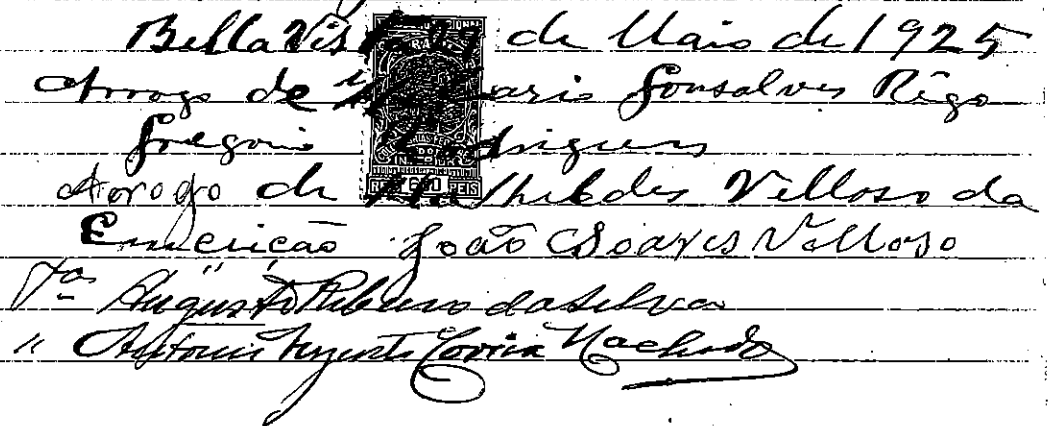 Bella Vista 27 de Maio de 1925
Arrogo de Maria Gonsalves Rêgo
Gregorio Rodrigues
Arrogo de Mathildes Velloso da
Conceição João Soares Velloso
Tas Augusto Ribeiro da Silva
" Antonio Correia Machado